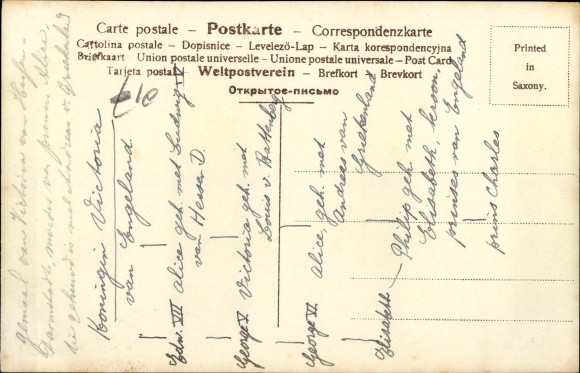 Carte postale – Postkarte – Correspondenzkarte
Cartolina postale – Dopisnice – Levelező-Lap – Karta korespondencyjna
Briefkaart Union postale universelle – Unione postale universale – Post Card
Tarjeta postal – Weltpostverein – Brefkort – Brevkort
Открытое-письмо
Printed
in
Saxony.
Gemaal van Victoria van Hessen-
Darmstadt, moeder van prinses Alice,
die gehuwd is met Andreas v. Griekenland
Koningin Victoria
van Engeland
Edw. VII Alice geh. met Ludwig IV
van Hessen D.
George V Victoria geh. met
Louis v. Battenberg
George VI Alice, geh. met
Andreas van
Griekenland
Elisabeth — Philip geh. met
Elisabeth, kroon-
prinses van Engeland
prins Charles